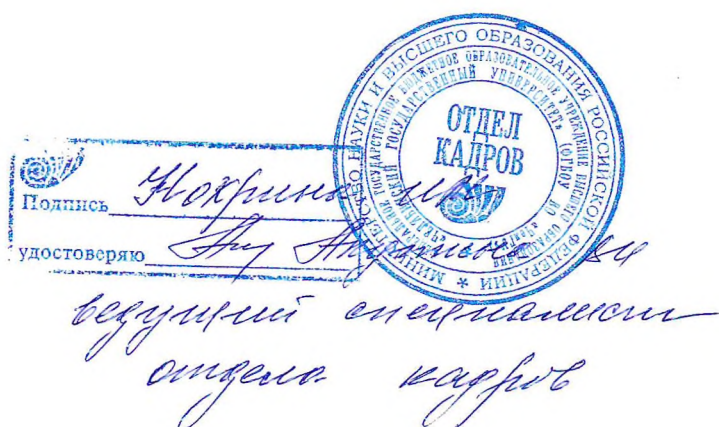 МИНИСТЕРСТВО НАУКИ И ВЫСШЕГО ОБРАЗОВАНИЯ РОССИЙСКОЙ ФЕДЕРАЦИИ *
ФЕДЕРАЛЬНОЕ ГОСУДАРСТВЕННОЕ БЮДЖЕТНОЕ ОБРАЗОВАТЕЛЬНОЕ УЧРЕЖДЕНИЕ ВЫСШЕГО ОБРАЗОВАНИЯ
ГОСУДАРСТВЕННЫЙ УНИВЕРСИТЕТ» (ФГБОУ ВО
ОТДЕЛ
КАДРОВ
Подпись
удостоверяю
ведущий специалист
отдела кадров